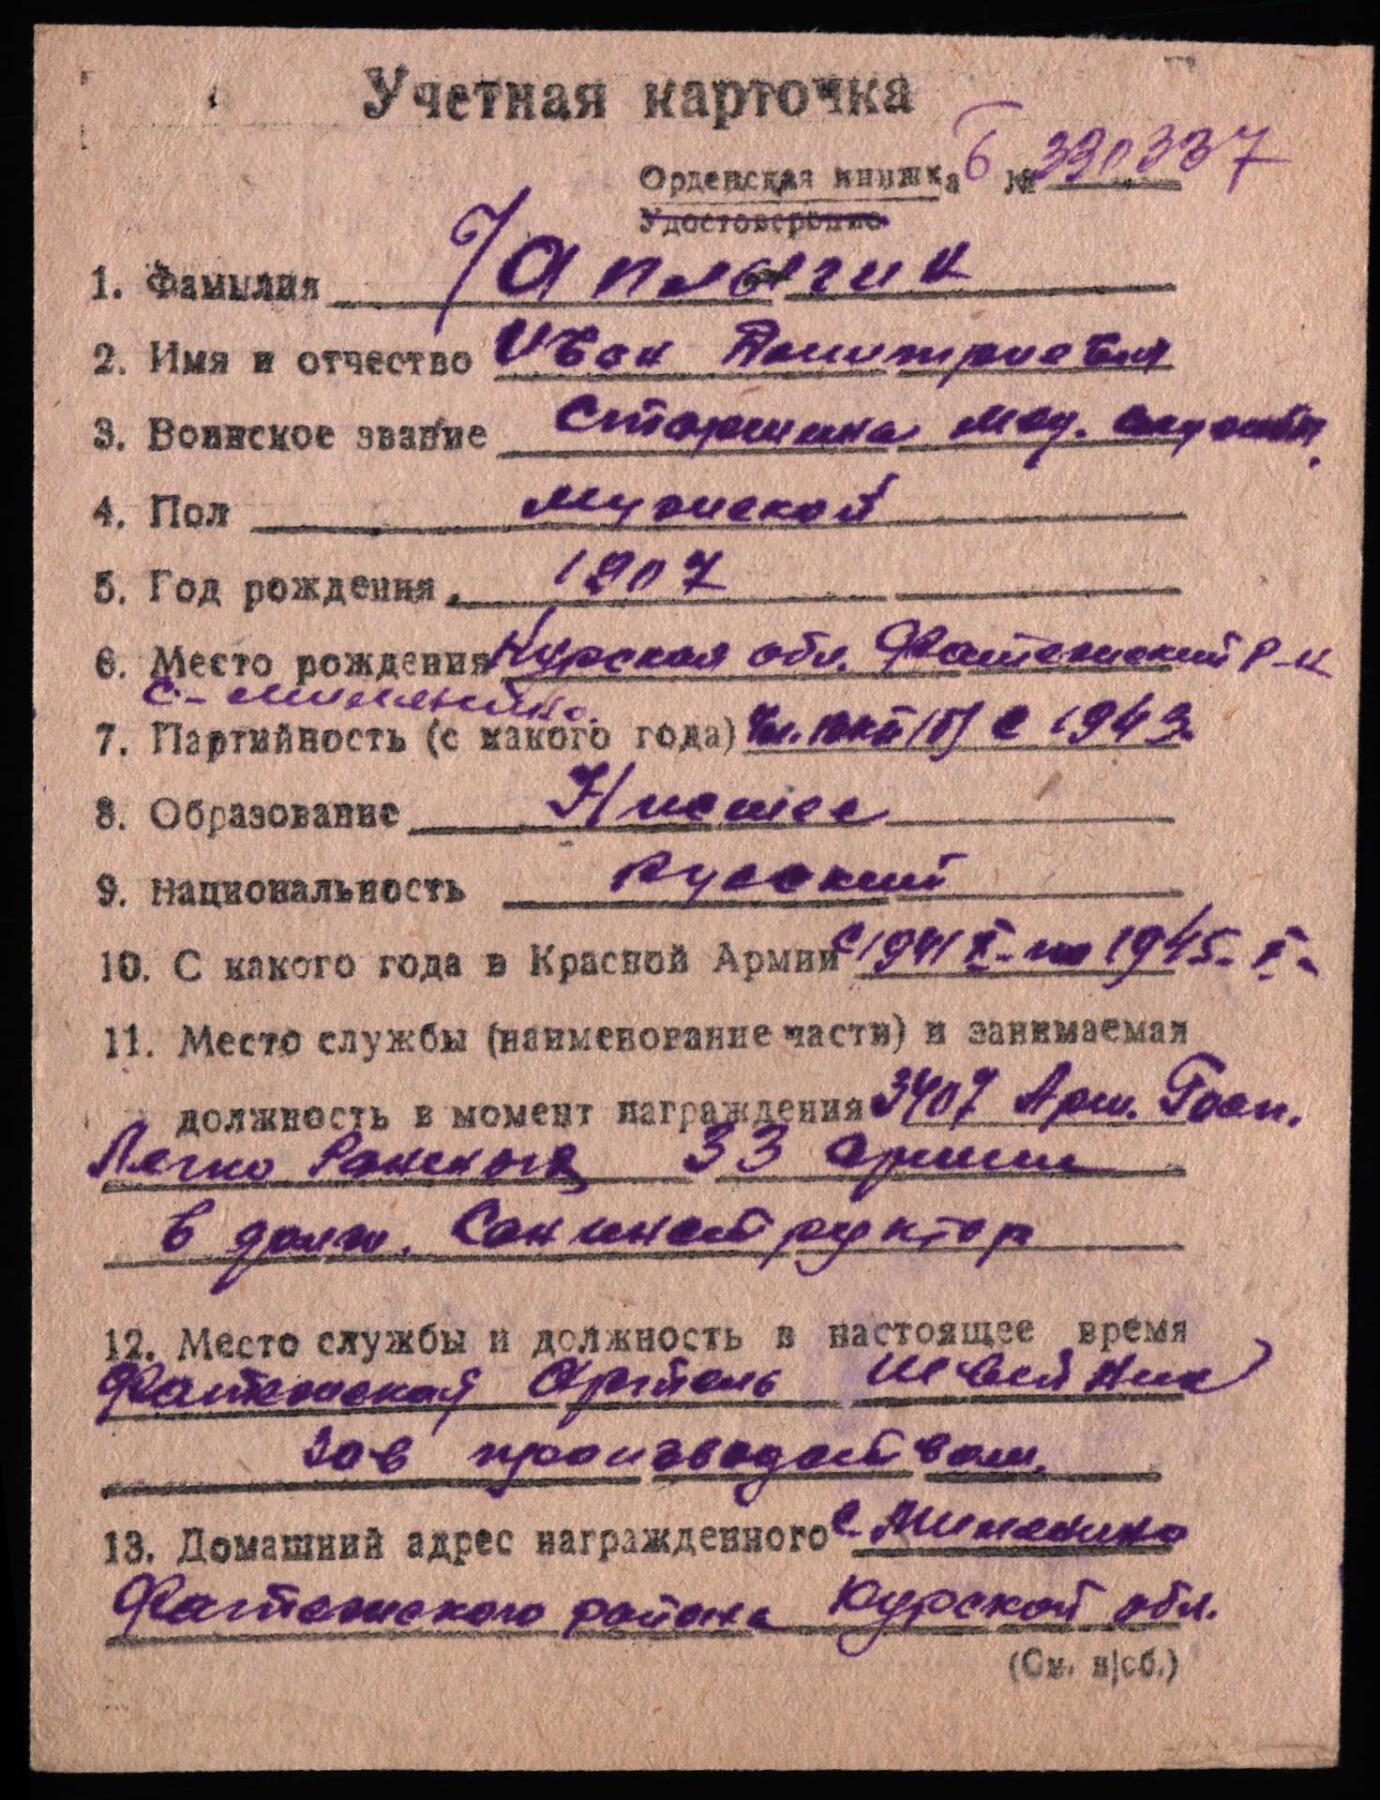 Учетная карточка
Орденская книжка Б № 330337
Удостоверение
1. Фамилия Чаплыгин
2. Имя и отчество Иван Дмитриевич
3. Воинское звание Старшина мед. службы
4. Пол мужской
5. Год рождения 1907
6. Место рождения Курская обл. Фатежский р-н
с-
7. Партийность (с какого года) Чл. ВКП(б) с 1943
8. Образование Низшее
9. Национальность русский
10. С какого года в Красной Армии с 1941 X - по 1945 - X -
11. Место службы (наименование части) и занимаемая
должность в момент награждения 3407 Арм. Госп.
Легко Раненых 33 армии
в долж. Санинструктор
12. Место службы и должность в настоящее время
Фатежская Артель Швейник
Зав производством
13. Домашний адрес награжденного с.
Фатежского района Курской обл.
(См. н|об.)